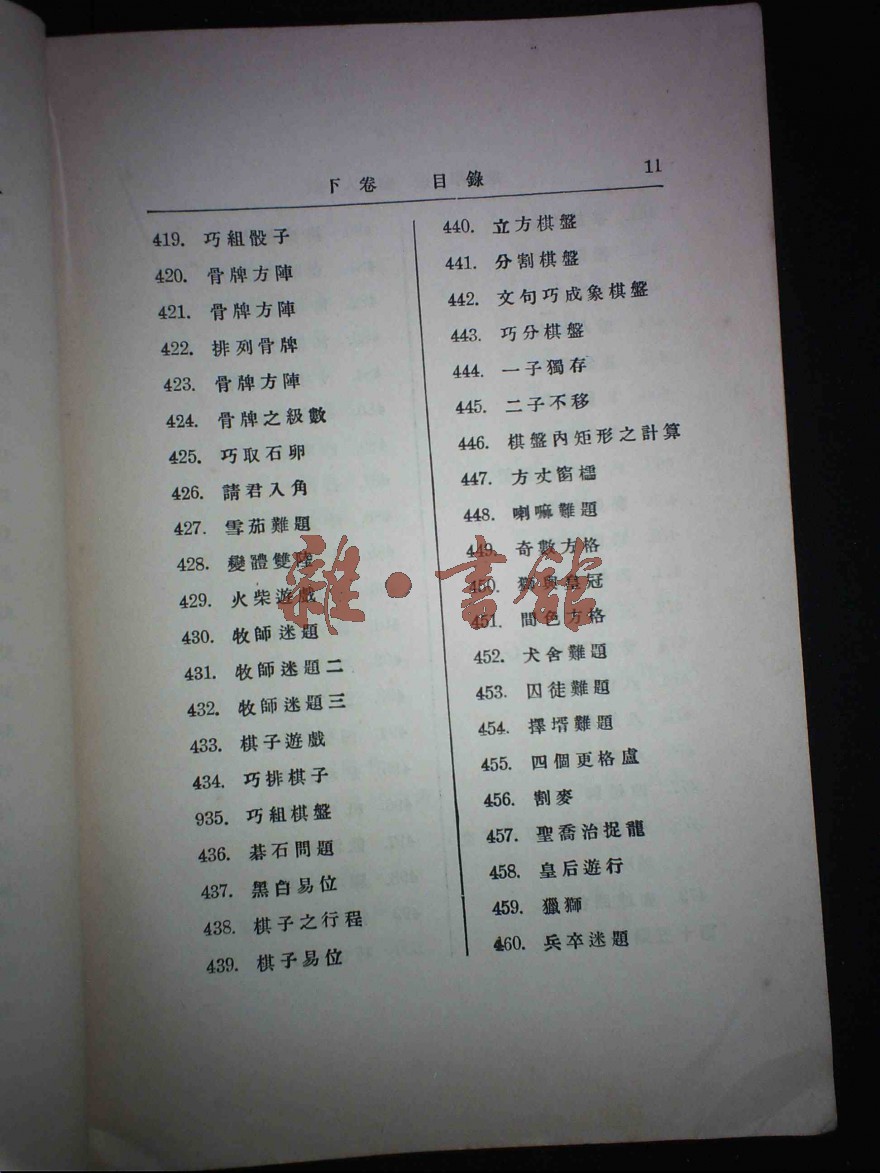 下卷 目錄 11
419. 巧組骰子
420. 骨牌方陣
421. 骨牌方陣
422. 排列骨牌
423. 骨牌方陣
424. 骨牌之級數
425. 巧取石卵
426. 請君入角
427. 雪茄難題
428. 變體雙陸
429. 火柴遊戲
430. 牧師迷題
431. 牧師迷題二
432. 牧師迷題三
433. 棋子遊戲
434. 巧排棋子
935. 巧組棋盤
436. 碁石問題
437. 黑白易位
438. 棋子之行程
439. 棋子易位
440. 立方棋盤
441. 分割棋盤
442. 文句巧成象棋盤
443. 巧分棋盤
444. 一子獨存
445. 二子不移
446. 棋盤內矩形之計算
447. 方丈窗櫺
448. 喇嘛難題
449. 奇數方格
450. 獅與皇冠
451. 間色方格
452. 犬舍難題
453. 囚徒難題
454. 擇壻難題
455. 四個更格盧
456. 割麥
457. 聖喬治捉龍
458. 皇后遊行
459. 獵獅
460. 兵卒迷題
雜·書館